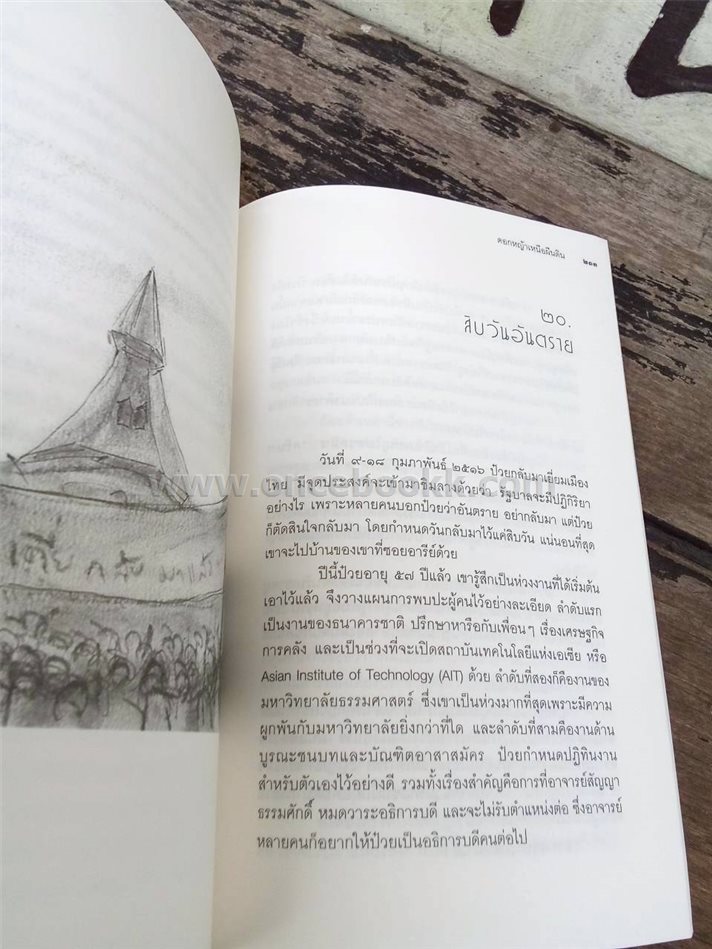 ดอกหญ้าเหนือผืนดิน
๒๑๓
๒๐.
สิบวันอันตราย
วันที่ ๙-๑๘ กุมภาพันธ์ ๒๕๑๖ ป๋วยกลับมาเยี่ยมเมือง
ไทย มีจุดประสงค์จะเข้ามาชิมลางด้วยว่า รัฐบาลจะมีปฏิกิริยา
อย่างไร เพราะหลายคนบอกป๋วยว่าอันตราย อย่ากลับมา แต่ป๋วย
ก็ตัดสินใจกลับมา โดยกำหนดวันกลับมาไว้แค่สิบวัน แน่นอนที่สุด
เขาจะไปบ้านของเขาที่ซอยอารีย์ด้วย
ปีนี้ป๋วยอายุ ๕๗ ปีแล้ว เขารู้สึกเป็นห่วงงานที่ได้เริ่มต้น
เอาไว้แล้ว จึงวางแผนการพบปะผู้คนไว้อย่างละเอียด ลำดับแรก
เป็นงานของธนาคารชาติ ปรึกษาหารือกับเพื่อนๆ เรื่องเศรษฐกิจ
การคลัง และเป็นช่วงที่จะเปิดสถาบันเทคโนโลยีแห่งเอเชีย หรือ
Asian Institute of Technology (AIT) ด้วย ลำดับที่สองก็คืองานของ
มหาวิทยาลัยธรรมศาสตร์ ซึ่งเขาเป็นห่วงมากที่สุดเพราะมีความ
ผูกพันกับมหาวิทยาลัยยิ่งกว่าที่ใด และลำดับที่สามคืองานด้าน
บูรณะชนบทและบัณฑิตอาสาสมัคร ป๋วยกำหนดปฏิทินงาน
สำหรับตัวเองไว้อย่างดี รวมทั้งเรื่องสำคัญคือการที่อาจารย์สัญญา
ธรรมศักดิ์ หมดวาระอธิการบดี และจะไม่รับตำแหน่งต่อ ซึ่งอาจารย์
หลายคนก็อยากให้ป๋วยเป็นอธิการบดีคนต่อไป
www.oncebookk.com